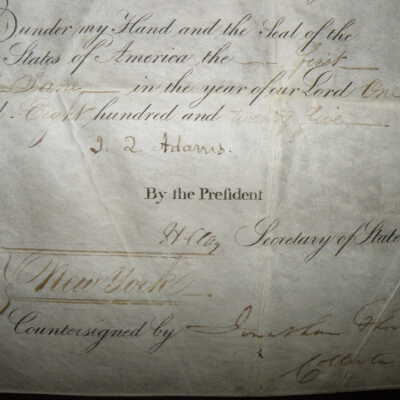 under my Hand and the Seal of the
States of America, the first
in the year of our Lord One
Eight hundred and twenty five
J. Q. Adams.
By the Preſident
H. Clay Secretary of State
New York
Countersigned by Jonathan